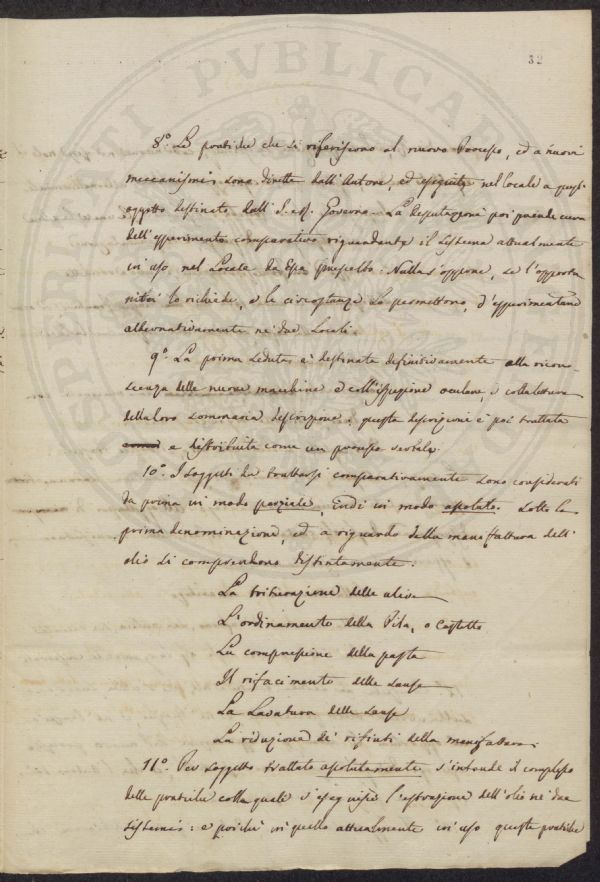 32
8.º Le pratiche che si riferiscono al nuovo Processo, ed a' nuovi
meccanismi sono dirette dall'Autore, ed eseguite nel locale a quest'
oggetto destinato dall'I. e R. Governo. La deputazione poi prende cura
dell'esperimento comparativo riguardante il Sistema attualmente
in uso nel Locale da Essa prescelto. Nulla s'oppone, se l'opportu
nità lo richiede, e le circostanze lo permettono, d'esperimentare
alternativamente ne' due Locali.
9.º La prima seduta è destinata definitivamente alla ricono-
scenza delle nuove macchine e coll'ispezione oculare, e colla lettura
della loro sommaria descrizione; questa descrizione è poi trattata
e distribuita come un processo verbale.
10.º I soggetti da trattarsi comparativamente sono considerati
da prima in modo parziale, indi in modo assoluto. Sotto la
prima denominazione, ed a riguardo della manifattura dell'
olio si comprendono distintamente:
La triturazione delle olive
L'ordinamento della Pila, o Castello
La compressione della pasta
Il rifacimento delle sanse
La Lavatura delle Sanse
La riduzione de' rifiuti della manifattura.
11.º Per soggetto trattato assolutamente s'intende il complesso
delle pratiche colle quali s'eseguisce l'estrazione dell'olio ne' due
sistemi: e poichè in quello attualmente in uso queste pratiche